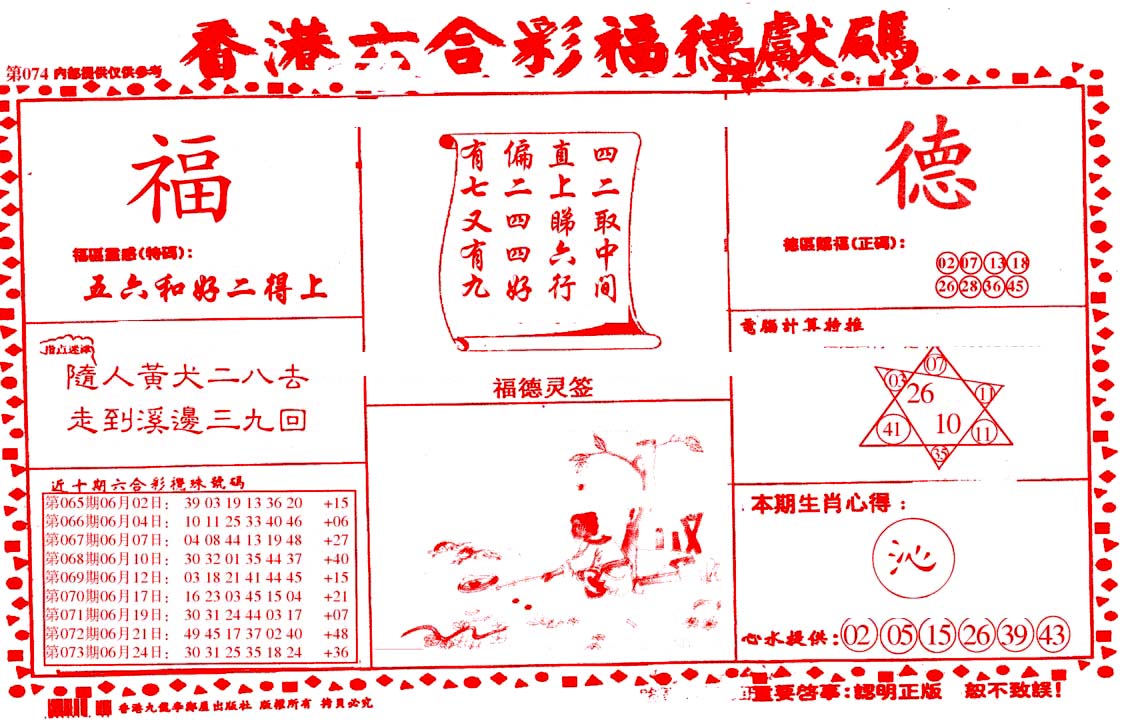 香港六合彩福德獻碼
第074 内部提供仅供参考
福
福區靈感(特碼):
五六和好二得上
四二取中间
直上睇六行
偏二四四好
有七又有九
德
德區賜福(正碼):
02 07 13 18
26 28 36 45
指点迷津
隨人黃犬二八去
走到溪邊三九回
福德灵签
電腦計算特推
07
03 26 11
41 10 11
35
近十期六合彩攪珠號碼
第065期06月02日: 39 03 19 13 36 20 +15
第066期06月04日: 10 11 25 33 40 46 +06
第067期06月07日: 04 08 44 13 19 48 +27
第068期06月10日: 30 32 01 35 44 37 +40
第069期06月12日: 03 18 21 41 44 45 +15
第070期06月17日: 16 23 03 45 15 04 +21
第071期06月19日: 30 31 24 44 03 17 +07
第072期06月21日: 49 45 17 37 02 40 +48
第073期06月24日: 30 31 25 35 18 24 +36
本期生肖心得:
沁
心水提供: 02 05 15 26 39 43
香港九龍李鄭屋出版社 版權所有 拷貝必究
重要啓事:認明正版 恕不致誤!